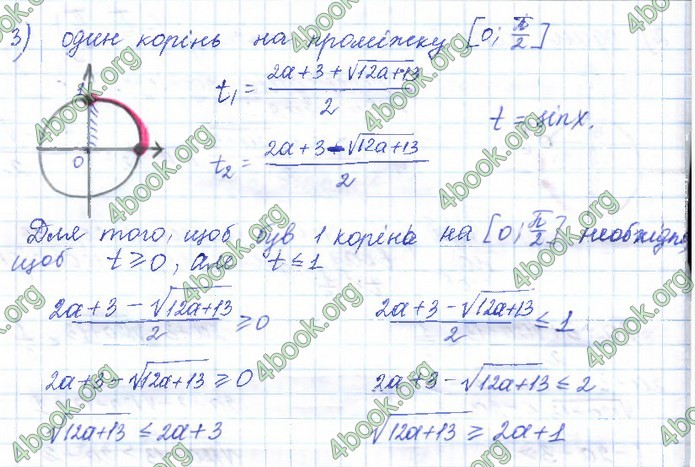 3) один корінь на проміжку [0; π/2]
t₁ = (2a + 3 + √(12a+13))/2
t = sin x.
t₂ = (2a + 3 - √(12a+13))/2
0
Для того, щоб був 1 корінь на [0; π/2] необхідно,
щоб t ≥ 0, але t ≤ 1
(2a + 3 - √(12a+13))/2 ≥ 0 (2a + 3 - √(12a+13))/2 ≤ 1
2a + 3 - √(12a+13) ≥ 0 2a + 3 - √(12a+13) ≤ 2
√(12a+13) ≤ 2a + 3 √(12a+13) ≥ 2a + 1
4book.org